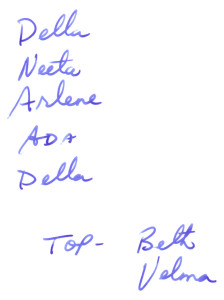 Della
Neeta
Arlene
ADA
Della
TOP- Beth
Velma